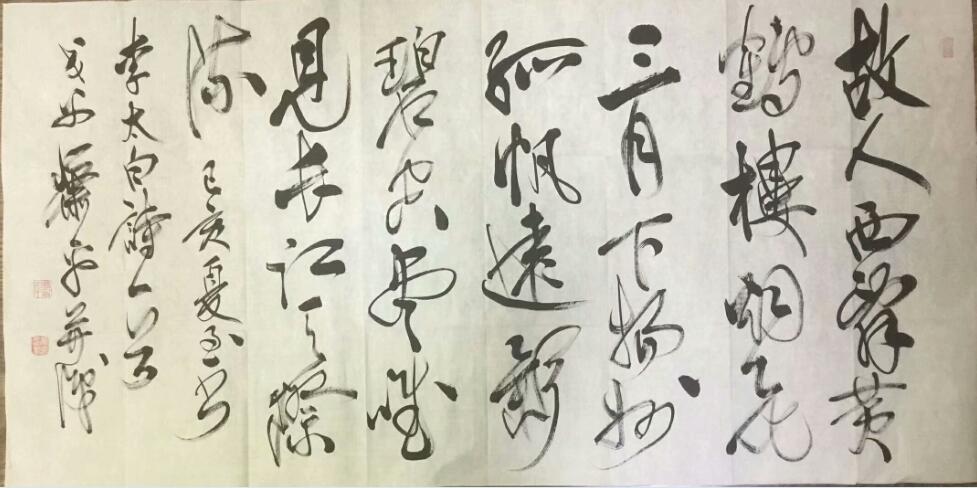 故人西辭黄
鶴樓烟花
三月下揚州
孤帆遠影
碧空尽唯
見長江天際
流 己亥夏至书
李太白詩一首
并識